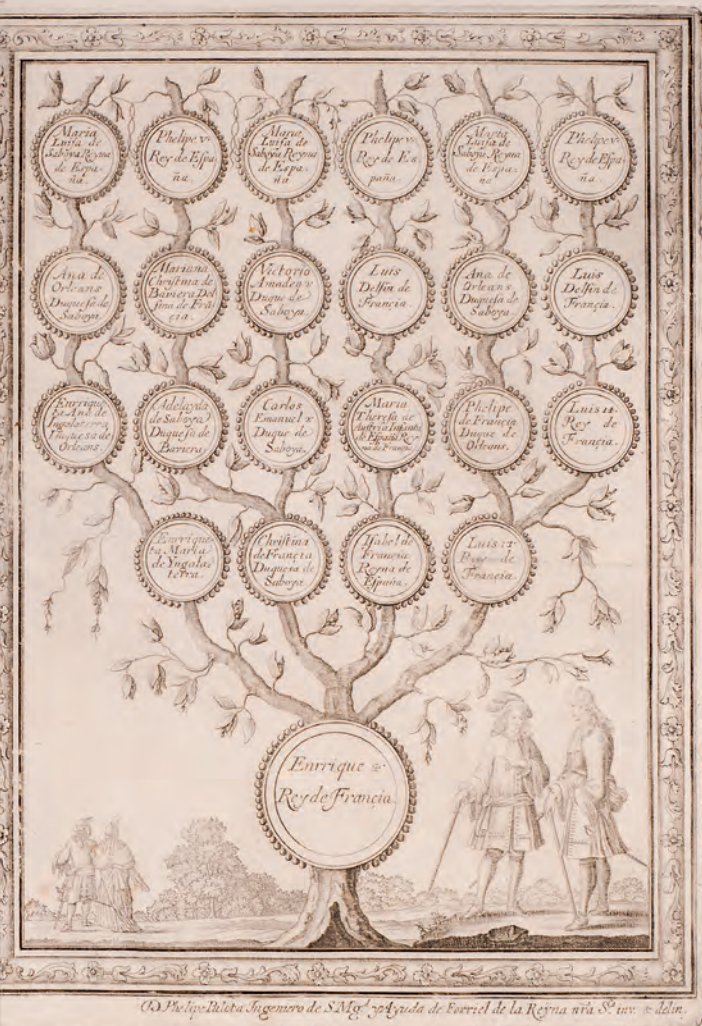 Maria
Luisa de
Saboya Reyna
de Espa-
ña.
Phelipe v
Rey de Espa-
ña.
Maria
Luisa de
Saboya Reyna
de Espa-
ña
Phelipe v
Rey de Es
paña.
Maria
Luisa de
Saboya Reyna
de Espa-
ña
Phelipe v
Rey de Espa-
ña.
Ana de
Orleans
Duquesa de
Saboya.
Mariana
Christina de
Baviera Del
fina de Fran
çia.
Victorio
Amadeo
Duque de
Saboya.
Luis
Delfin de
Françia.
Ana de
Orleans
Duquesa de
Saboya.
Luis
Delfin de
Françia.
Enrrique
ta Ana de
Ingalaterra
Duquesa de
Orleans.
Adelayda
de Saboya
Duquesa de
Baviera
Carlos
Emanuel 2
Duque de
Saboya.
Maria
Theresa de
Austria Infanta
de España Rey
na de Françia
Phelipe
de Francia
Duque de
Orleans.
Luis 14
Rey de
Françia.
Enrrique-
ta Maria
de Yngala
terra.
Christina
de Francia
Duquesa de
Saboya.
Isabel de
Francia
Reyna de
España.
Luis
Rey de
Francia.
Enrrique 4
Rey de Françia
D Phelipe Palota Ingeniero de S. Mgd. y Ayuda de Forriel de la Reyna nra Sa. inv. & delin.